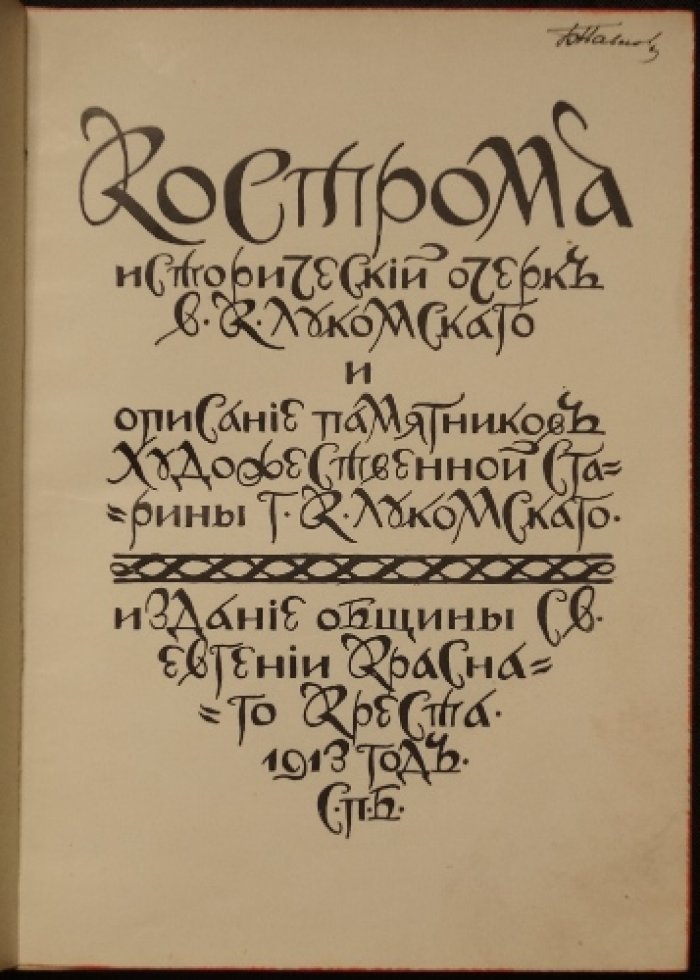 Кострома
историческій очеркъ
В. К. Лукомскаго
и
описаніе памятниковъ
художественной ста=
=рины Г. К. Лукомскаго.
изданіе общины Св.
Евгеніи Красна=
=го Креста.
1913 годъ.
С.П.Б.